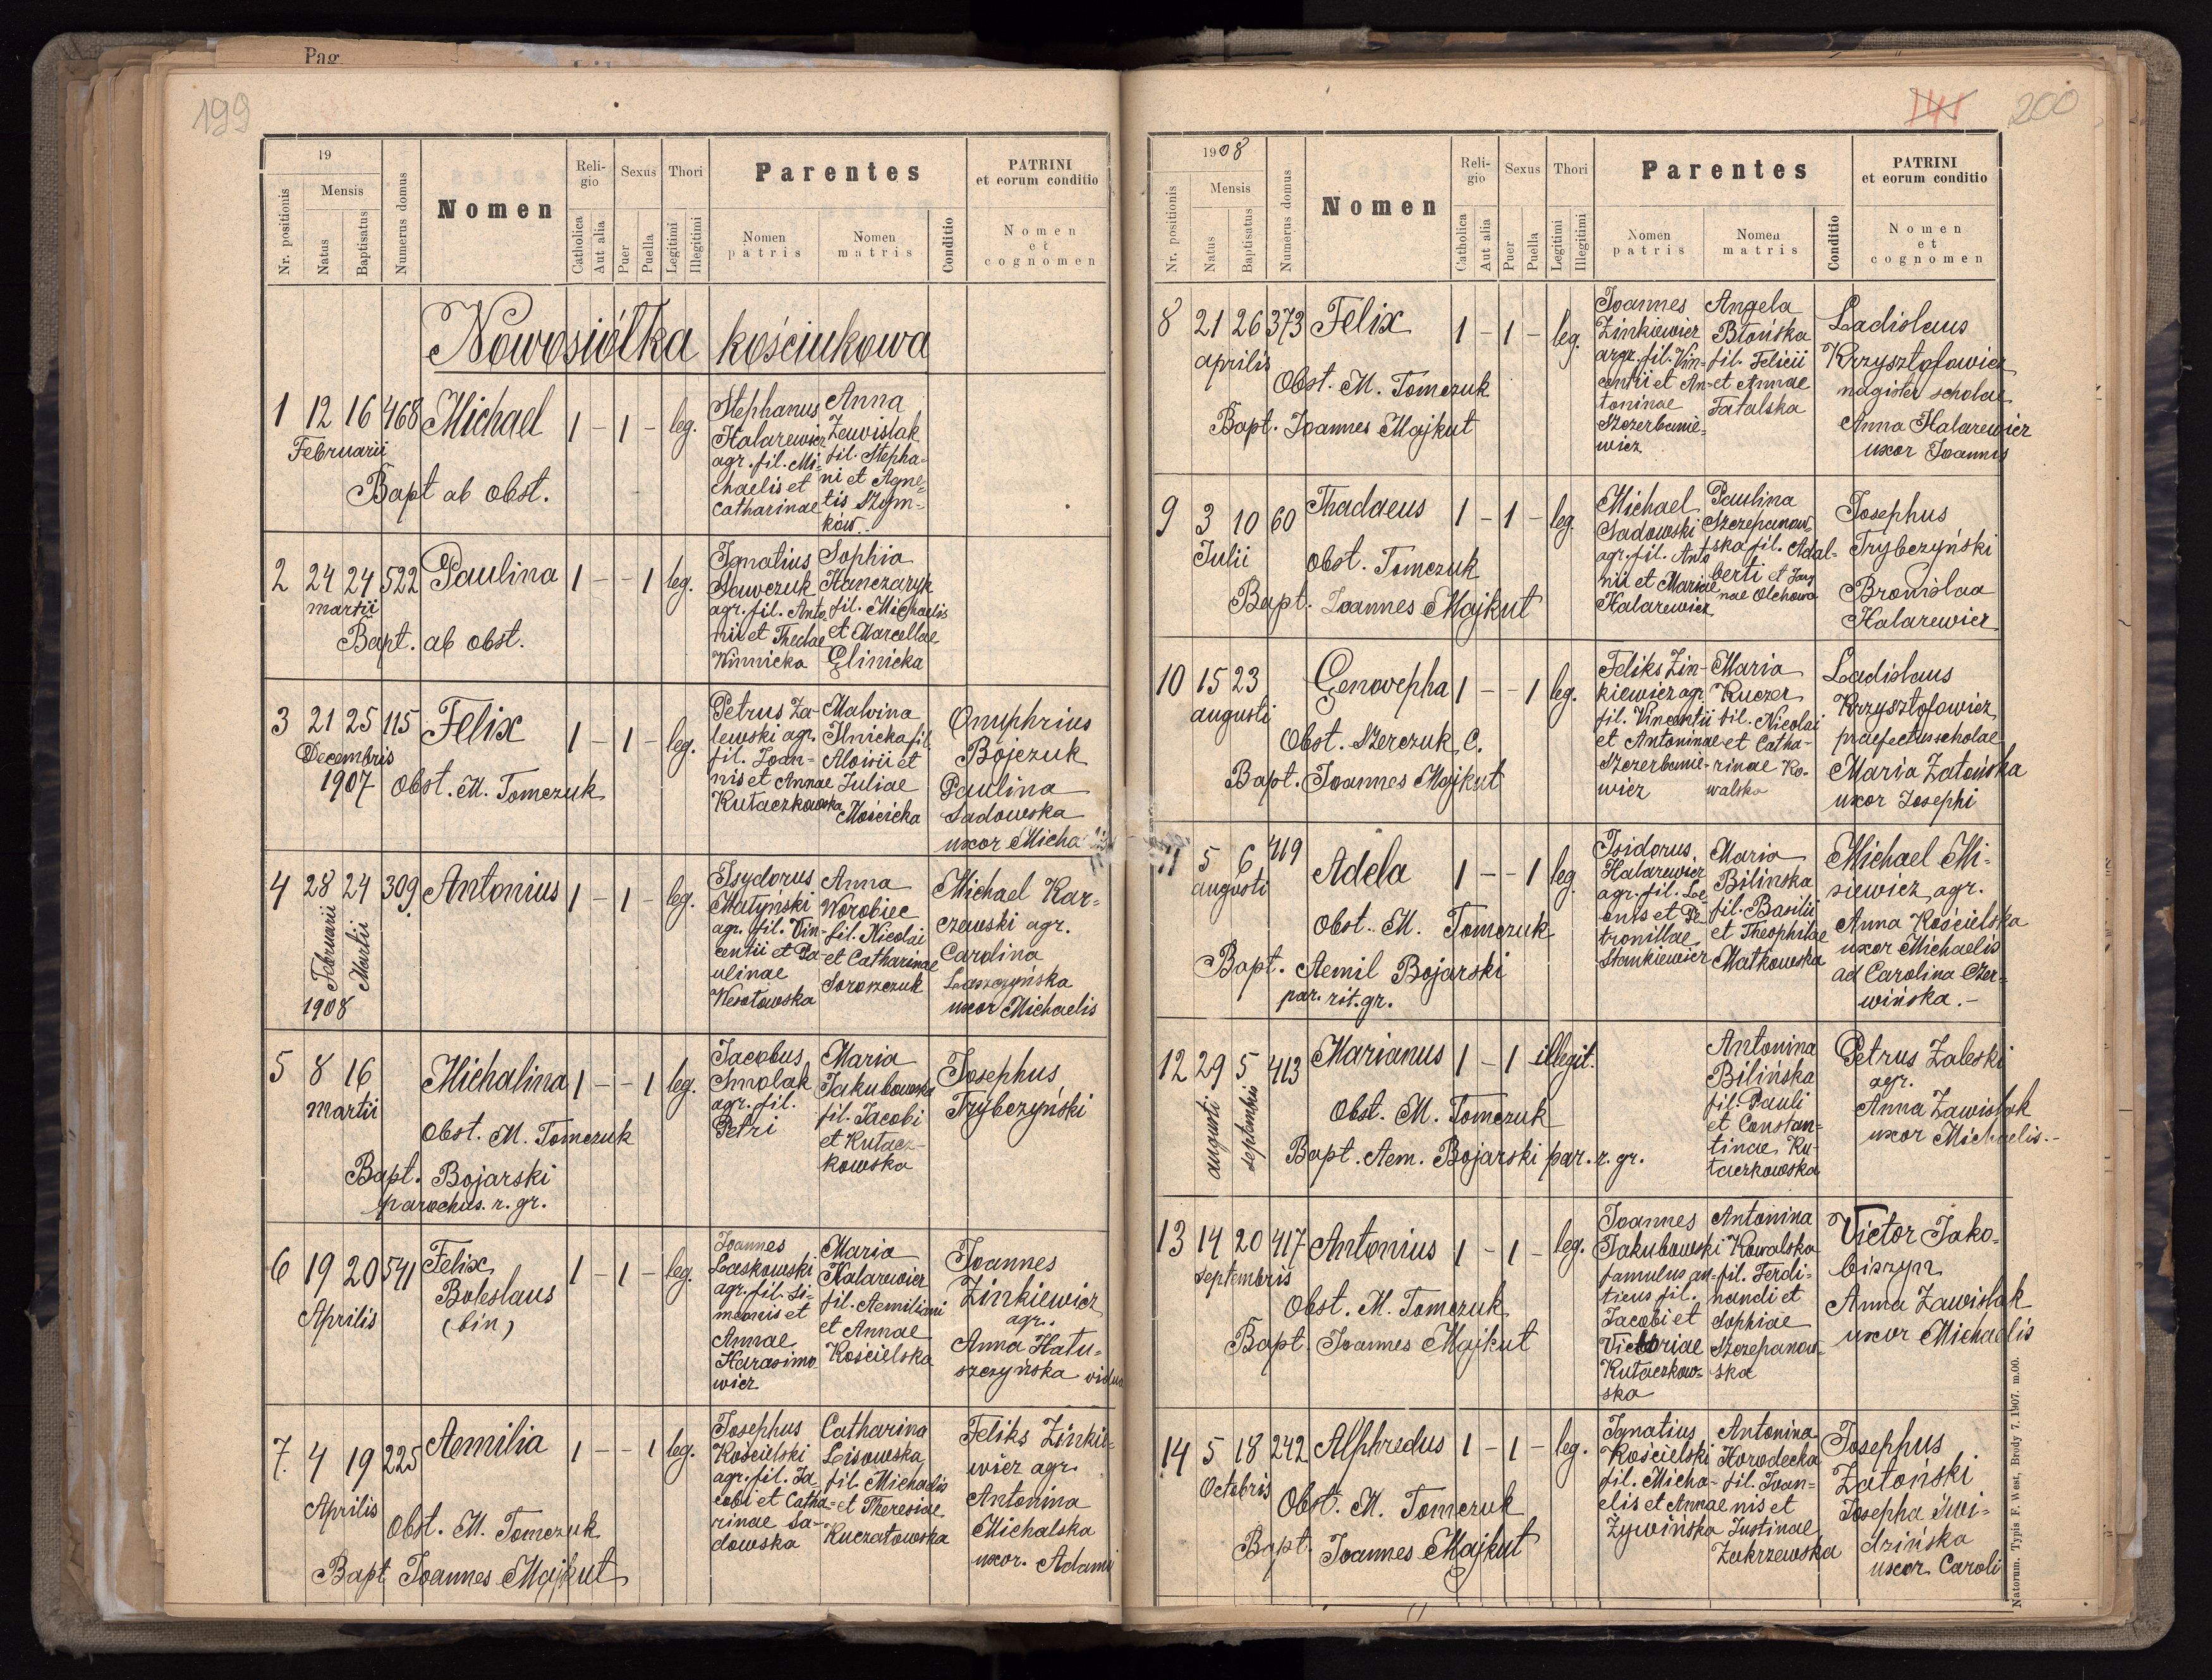 Pag.
199
19
Nr. positionis
Mensis
Natus
Baptisatus
Numerus domus
Nomen
Religio
Catholica
Aut alia
Sexus
Puer
Puella
Thori
Legitimi
Illegitimi
Parentes
Nomen patris
Nomen matris
Conditio
PATRINI
et eorum conditio
Nomen
et
cognomen
Nowosiółka kościukowa
1 12 16 468 Michael 1 – 1 – leg.
Februarii
Bapt ab obst.
Stephanus
Halarewicz
agr. fil. Mi-
chaelis et
Catharinae
Anna
Zewislak
fil. Stepha-
ni et Agne-
tis Szym-
ków.
2 24 24 522 Paulina 1 – – 1 leg.
martii
Bapt. ab obst.
Ignatius
Sawczuk
agr. fil. Anto
nii et Theclae
Winnicka
Sophia
Hanczaryk
fil. Michaelis
et Marcellae
Glinicka
3 21 25 115 Felix 1 – 1 – leg.
Decembris
1907 Obst. M. Tomczuk
Petrus Za-
lewski agr.
fil. Joan-
nis et Annae
Kutaczkowska
Malvina
Ilnicka fil.
Aloisii et
Juliae
Mościcka
Onuphrius
Bojczuk
Paulina
Sadowska
uxor Micha
4 28 24 309 Antonius 1 – 1 – leg.
Februarii
Martii
1908
Isydorus
Matyński
agr. fil. Vin-
centii et Pa-
ulinae
Wesołowska
Anna
Worobiec
fil. Nicolai
et Catharinae
Soroszczuk
Michael Kar-
czewski agr.
Carolina
Laszczyńska
uxor Michaelis
5 8 16 Michalina 1 – – 1 leg.
martii
Obst. M. Tomczuk
Bapt. Bojarski
parochus. r. gr.
Jacobus
Smolak
agr. fil.
Petri
Maria
Jakubowska
fil. Jacobi
et Kutacz-
kowska
Josephus
Trybczyński
6 19 20 541 Felix 1 – 1 – leg.
Aprilis
Boleslaus
(bin)
Joannes
Laskowski
agr. fil. Si-
meonis et
Annae
Harasimo
wicz
Maria
Halarewicz
fil. Aemiliani
et Annae
Kościelska
Joannes
Zinkiewicz
agr.
Anna Hatu-
szczyńska vidua
7. 4 19 225 Aemilia 1 – – 1 leg.
Aprilis
Obst. M. Tomczuk
Bapt Joannes Majkut
Josephus
Kościelski
agr. fil. Ja
cobi et Catha-
rinae Sa-
dowska
Catharina
Lisowska
fil. Michaelis
et Theresiae
Kuczatowska
Feliks Zinkie-
wicz agr.
Antonina
Michalska
uxor. Adami
141
200
1908
Nr. positionis
Mensis
Natus
Baptisatus
Numerus domus
Nomen
Religio
Catholica
Aut alia
Sexus
Puer
Puella
Thori
Legitimi
Illegitimi
Parentes
Nomen patris
Nomen matris
Conditio
PATRINI
et eorum conditio
Nomen
et
cognomen
8 21 26 373 Felix 1 – 1 – leg.
aprilis
Obst. M. Tomczuk
Bapt. Joannes Majkut
Joannes
Zinkiewicz
agr. fil. Vin-
centii et An-
toninae
Szczerbanie-
wicz
Angela
Błońska
fil. Felicii
et Annae
Fatalska
Ladislaus
Krzysztofowicz
magister scholae
Anna Halarewicz
uxor Joannis
9 3 10 60 Thadaeus 1 – 1 – leg.
Julii
Obst. Tomczuk
Bapt. Joannes Majkut
Michael
Sadowski
agr. fil. Anto
nii et Mariae
Halarewicz
Paulina
Szczepanow-
ska fil. Adal-
berti et Joan
nae Olchowa
Josephus
Trybczyński
Bronislaa
Halarewicz
10 15 23 Genovepha 1 – – 1 leg.
augusti
Obst. Szerczuk C.
Bapt. Joannes Majkut
Feliks Zin-
kiewicz agr.
fil. Vincentii
et Antoninae
Szczerbanie-
wicz
Maria
Kuczer
fil. Nicolai
et Catha-
rinae Ko-
walska
Ladislaus
Krzysztofowicz
praefectus scholae
Maria Zatońska
uxor Josephi
11 5 6 419 Adela 1 – – 1 leg
augusti
Obst. M. Tomczuk
Bapt. Aemil Bojarski
par. rit. gr.
Isidorus
Halarewicz
agr. fil. Le
onis et Pe
tronillae
Stankiewicz
Maria
Bilinska
fil. Basilii
et Theophilae
Matkowska
Michael Mi-
siewicz agr.
Anna Kościelska
uxor Michaelis
ad Carolina Czer-
wińska. –
12 29 5 413 Marianus 1 – 1 illegit.
augusti
septembris
Obst. M. Tomczuk
Bapt. Aem. Bojarski par. r. gr.
Antonina
Bilińska
fil. Pauli
et Constan-
tinae Ku-
taczkowska
Petrus Zaleski
agr.
Anna Zawislak
uxor Michaelis.-
13 14 20 417 Antonius 1 – 1 – leg.
septembris
Obst. M. Tomczuk
Bapt. Joannes Majkut
Joannes
Jakubowski
famulus an-
ticus fil.
Jacobi et
Victoriae
Kutaczkow-
ska
Antonina
Kowalska
fil. Ferdi-
nandi et
Sophiae
Szczepanow-
ska
Victor Jako-
biszyn
Anna Zawislak
uxor Michaelis
14 5 18 242 Alphredus 1 – 1 – leg.
Octobris
Obst. M. Tomczuk
Bapt. Joannes Majkut
Ignatius
Kościelski
fil. Micha-
elis et Annae
Żywińska
Antonina
Horodecka
fil. Joan-
nis et
Justinae
Zakrzewska
Josephus
Zatoński
Josepha Swi-
dzińska
uxor Caroli
Natorum. Typis F. West, Brody 7. 1907. m.00.